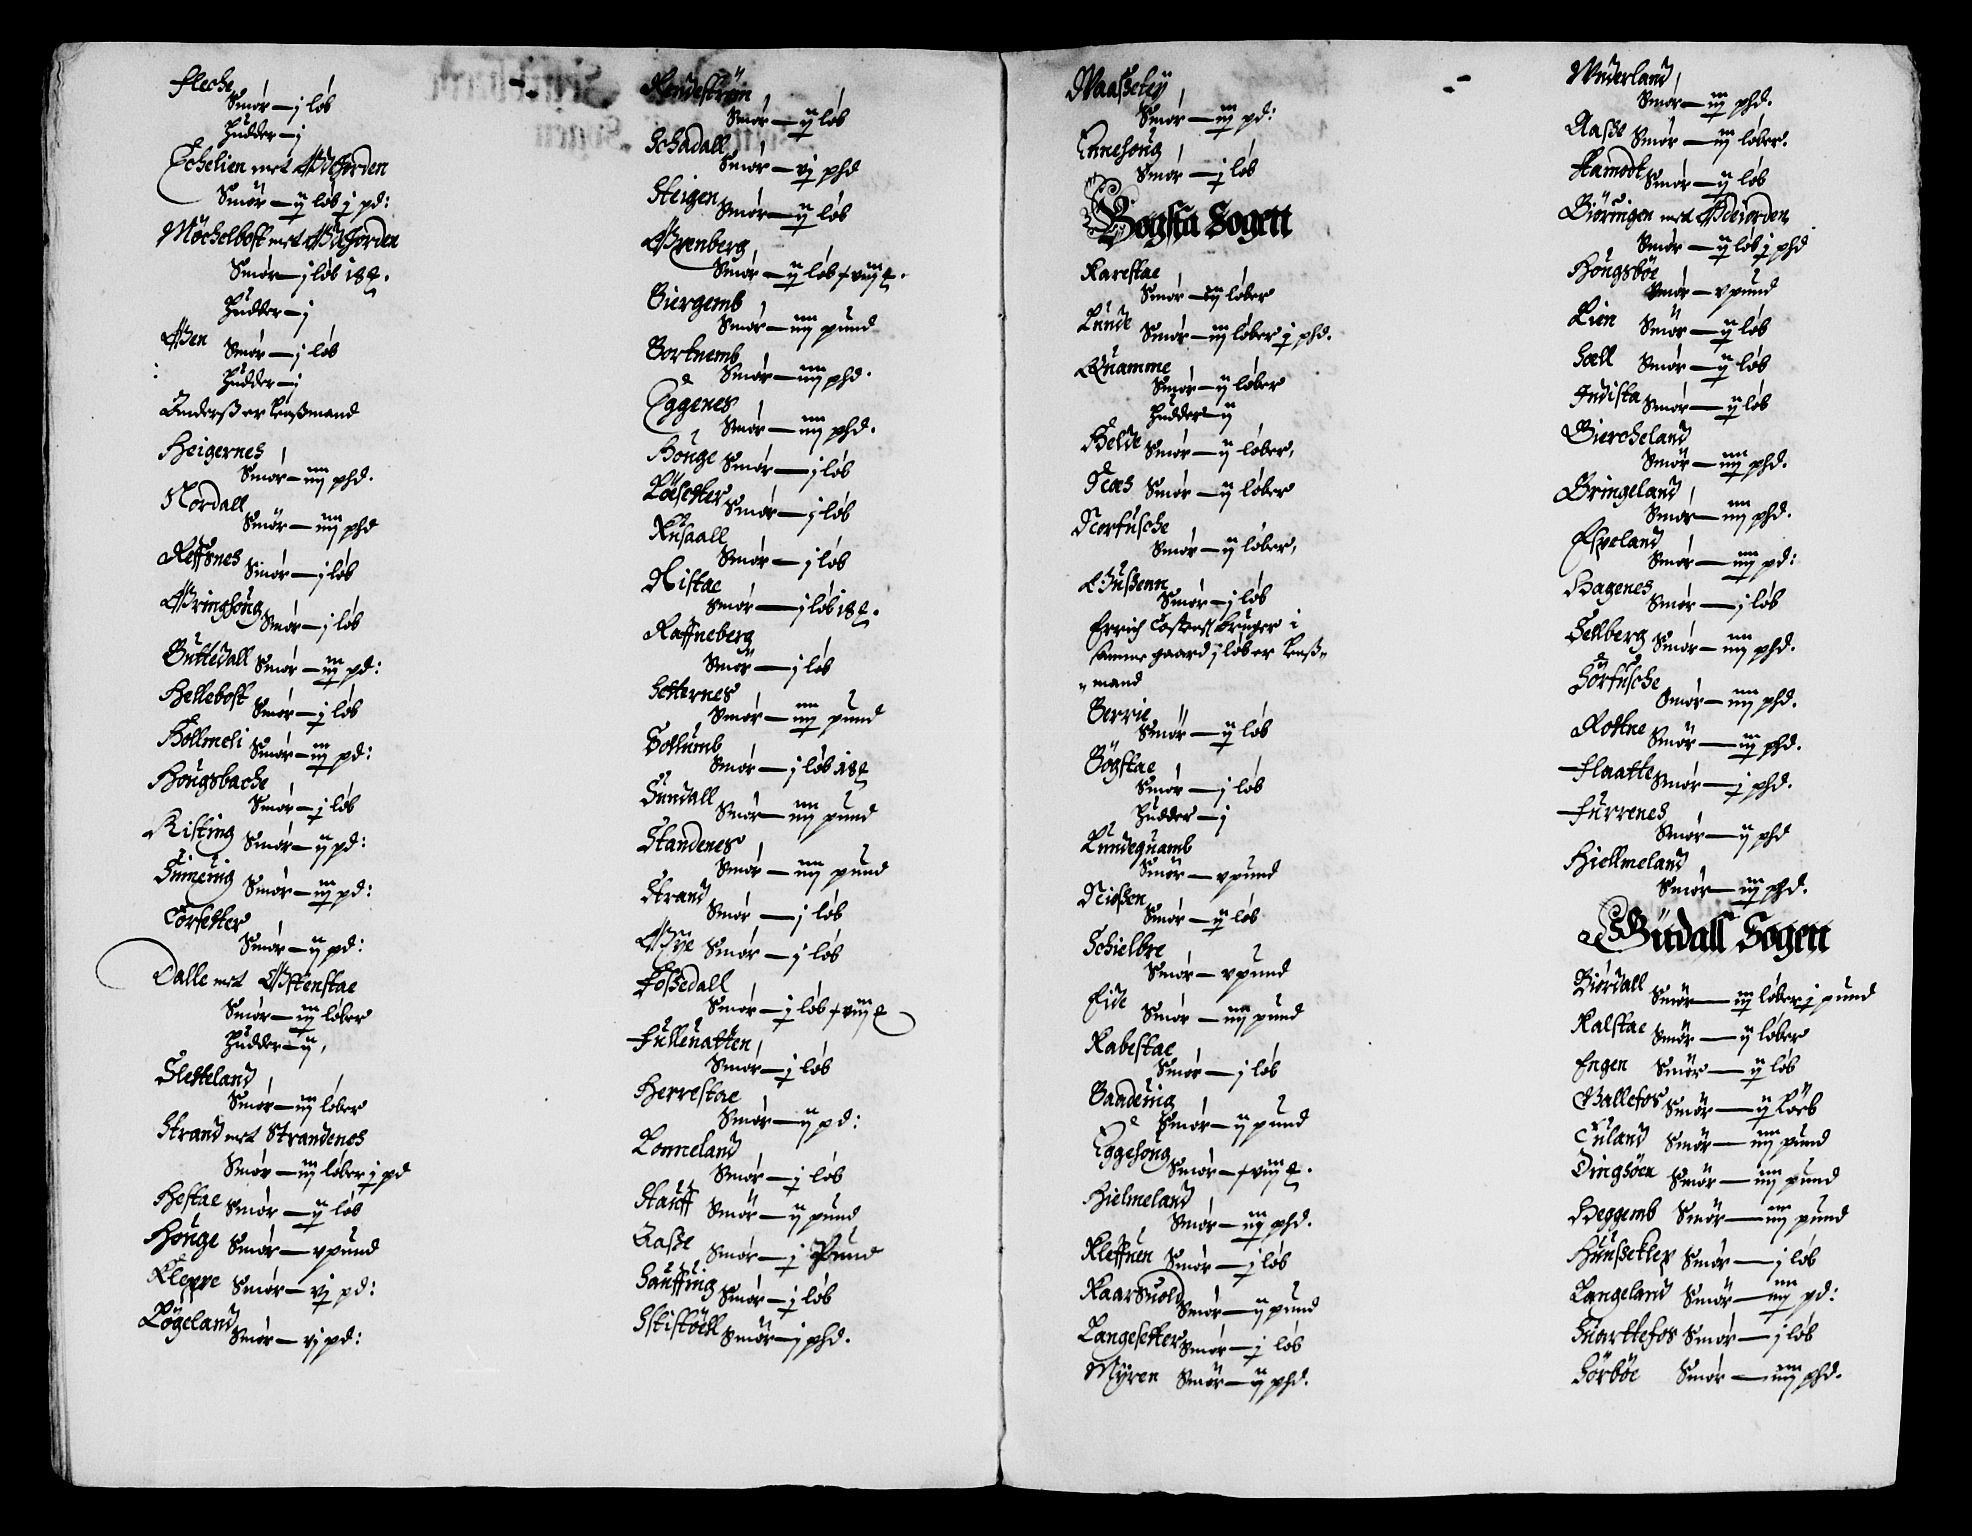 Fleche
Smör — j löb
Hüdder — j
Echelien met Ødejorden
Smör — ij löb j pd:
Möchelbost met Ødejorden
Smör — j löb 18
Hüdder — j
Øen
Smör — j löb
Hüdder — j
Anderss er leßmand
Heigernes
Smör — iiij phd.
Nordall
Smör — iiij phd
Reffsnes Smör — j löb
Øringsöug Smör — j löb
Guttedall Smör — iij pd:
Hellebost Smör — j löb
Hollmeli Smör — iij pd:
Hougsbache
Smör — j löb
Risting Smör — ij pd:
Smör — iij pd:
Torsetter
Smör — ij pd:
Dalle met Østenstae
Smör — iij löber
Hüdder — ij
Sletteland
Smör — iij löber
Strand met Strandenes
Smör — iij löber j pd
Hestae Smör — ij löb
Houge Smör — v pund
Kleppe Smör — vj pd:
Lögeland Smör — vj pd:
Rendeström
Smör — ij löb
Schadall
Smör — vj phd
Steigen Smör — ij löb
Ørenberg
Smör — ij löb
Biergemb
Smör — iiij pund
Bortnemb
Smör — iiij phd.
Eggenes
Smör — iiij phd.
Houge Smör — j löb
Löesetter Smör — j löb
Smör — j löb
Ristae
Smör — j löb 18
Raffneberg
Smör — j löb
Setternes
Smör — iiij pund
Sollumb
Smör — j löb 18
Sundall
Smör — iiij pund
Standenes
Smör — iiij pund
Strand Smör — j löb
Øye Smör — j löb
Fossedall
Smör — j löb
Füllenatten
Smör — j löb
Herrestae
Smör — ij pd:
Lonneland
Smör — j löb
Stauff Smör — ij pund
Aaße Smör — j Pund
Sauffüng Smör — j löb
Smör — j phd.
Waaßetey
Smör — iij pd:
Ennesöug
Smör — j löb
Bogsta Sogen
Karestae
Smör — iij löber
Lunde Smör — iij löber j phd.
Quamme
Smör — ij löber
Hüdder — ij
Helde Smör — ij löber
Næs Smör — ij löber
Norfusche
Smör — ij löber
Øüßenn
Smör — j löb
Errich Tostenß bruger i
samme gaard j löb er leß-
mand
Berrie
Smör — ij löb
Bögstae
Smör — j löb
Hüdder — j
Lundequamb
Smör — v pund
Nioßen
Smör — ij löb
Schielbre
Smör — v pund
Eide
Smör — iiij pund
Kabestae
Smör — j löb
Smör — ij pund
Eggesöug
Hielmeland
Smör — iij phd.
Kleffuen Smör — j löb
Kaarsuold Smör — ij pund
Langesetter Smör — j löb
Myren Smör — ij phd.
Wnderland
Smör — iij phd.
Aaße Smör — iij löber.
Hamodt Smör — ij löb
Biöringen met Ødeiorden
Smör — ij löb j phd
Hougsböe
Smör — v pund
Lien Smör — ij löb
Sæll Smör — ij löb
Indista Smör — ij löb
Biercheland
Smör — iiij phd.
Bringeland
Smör — iiij phd.
Espeland
Smör — iiij pd:
Hagenes
Smör — j löb
Sellberg Smör — iiij phd.
Sörfusche
Smör — iiij phd.
Rottne
Smör — iij phd.
Flaatte Smör — j phd.
Furrenes
Smör — ij phd
Hiellmeland
Smör — iij phd.
Güdall Sogen
Biördall
Smör — iij löber j pund
Kalstae Smör — ij löber
Engen Smör — ij löb
Vallefos Smör — ij Löeb
Tuland Smör — iiij pund
Tingsöen Smör — iiij pund
Heggemb Smör — iiij pund
Hunssetter Smör — j löb
Langeland Smör — iiij pd:
Suartefos Smör — j löb
Sörböe Smör — iiij phd.